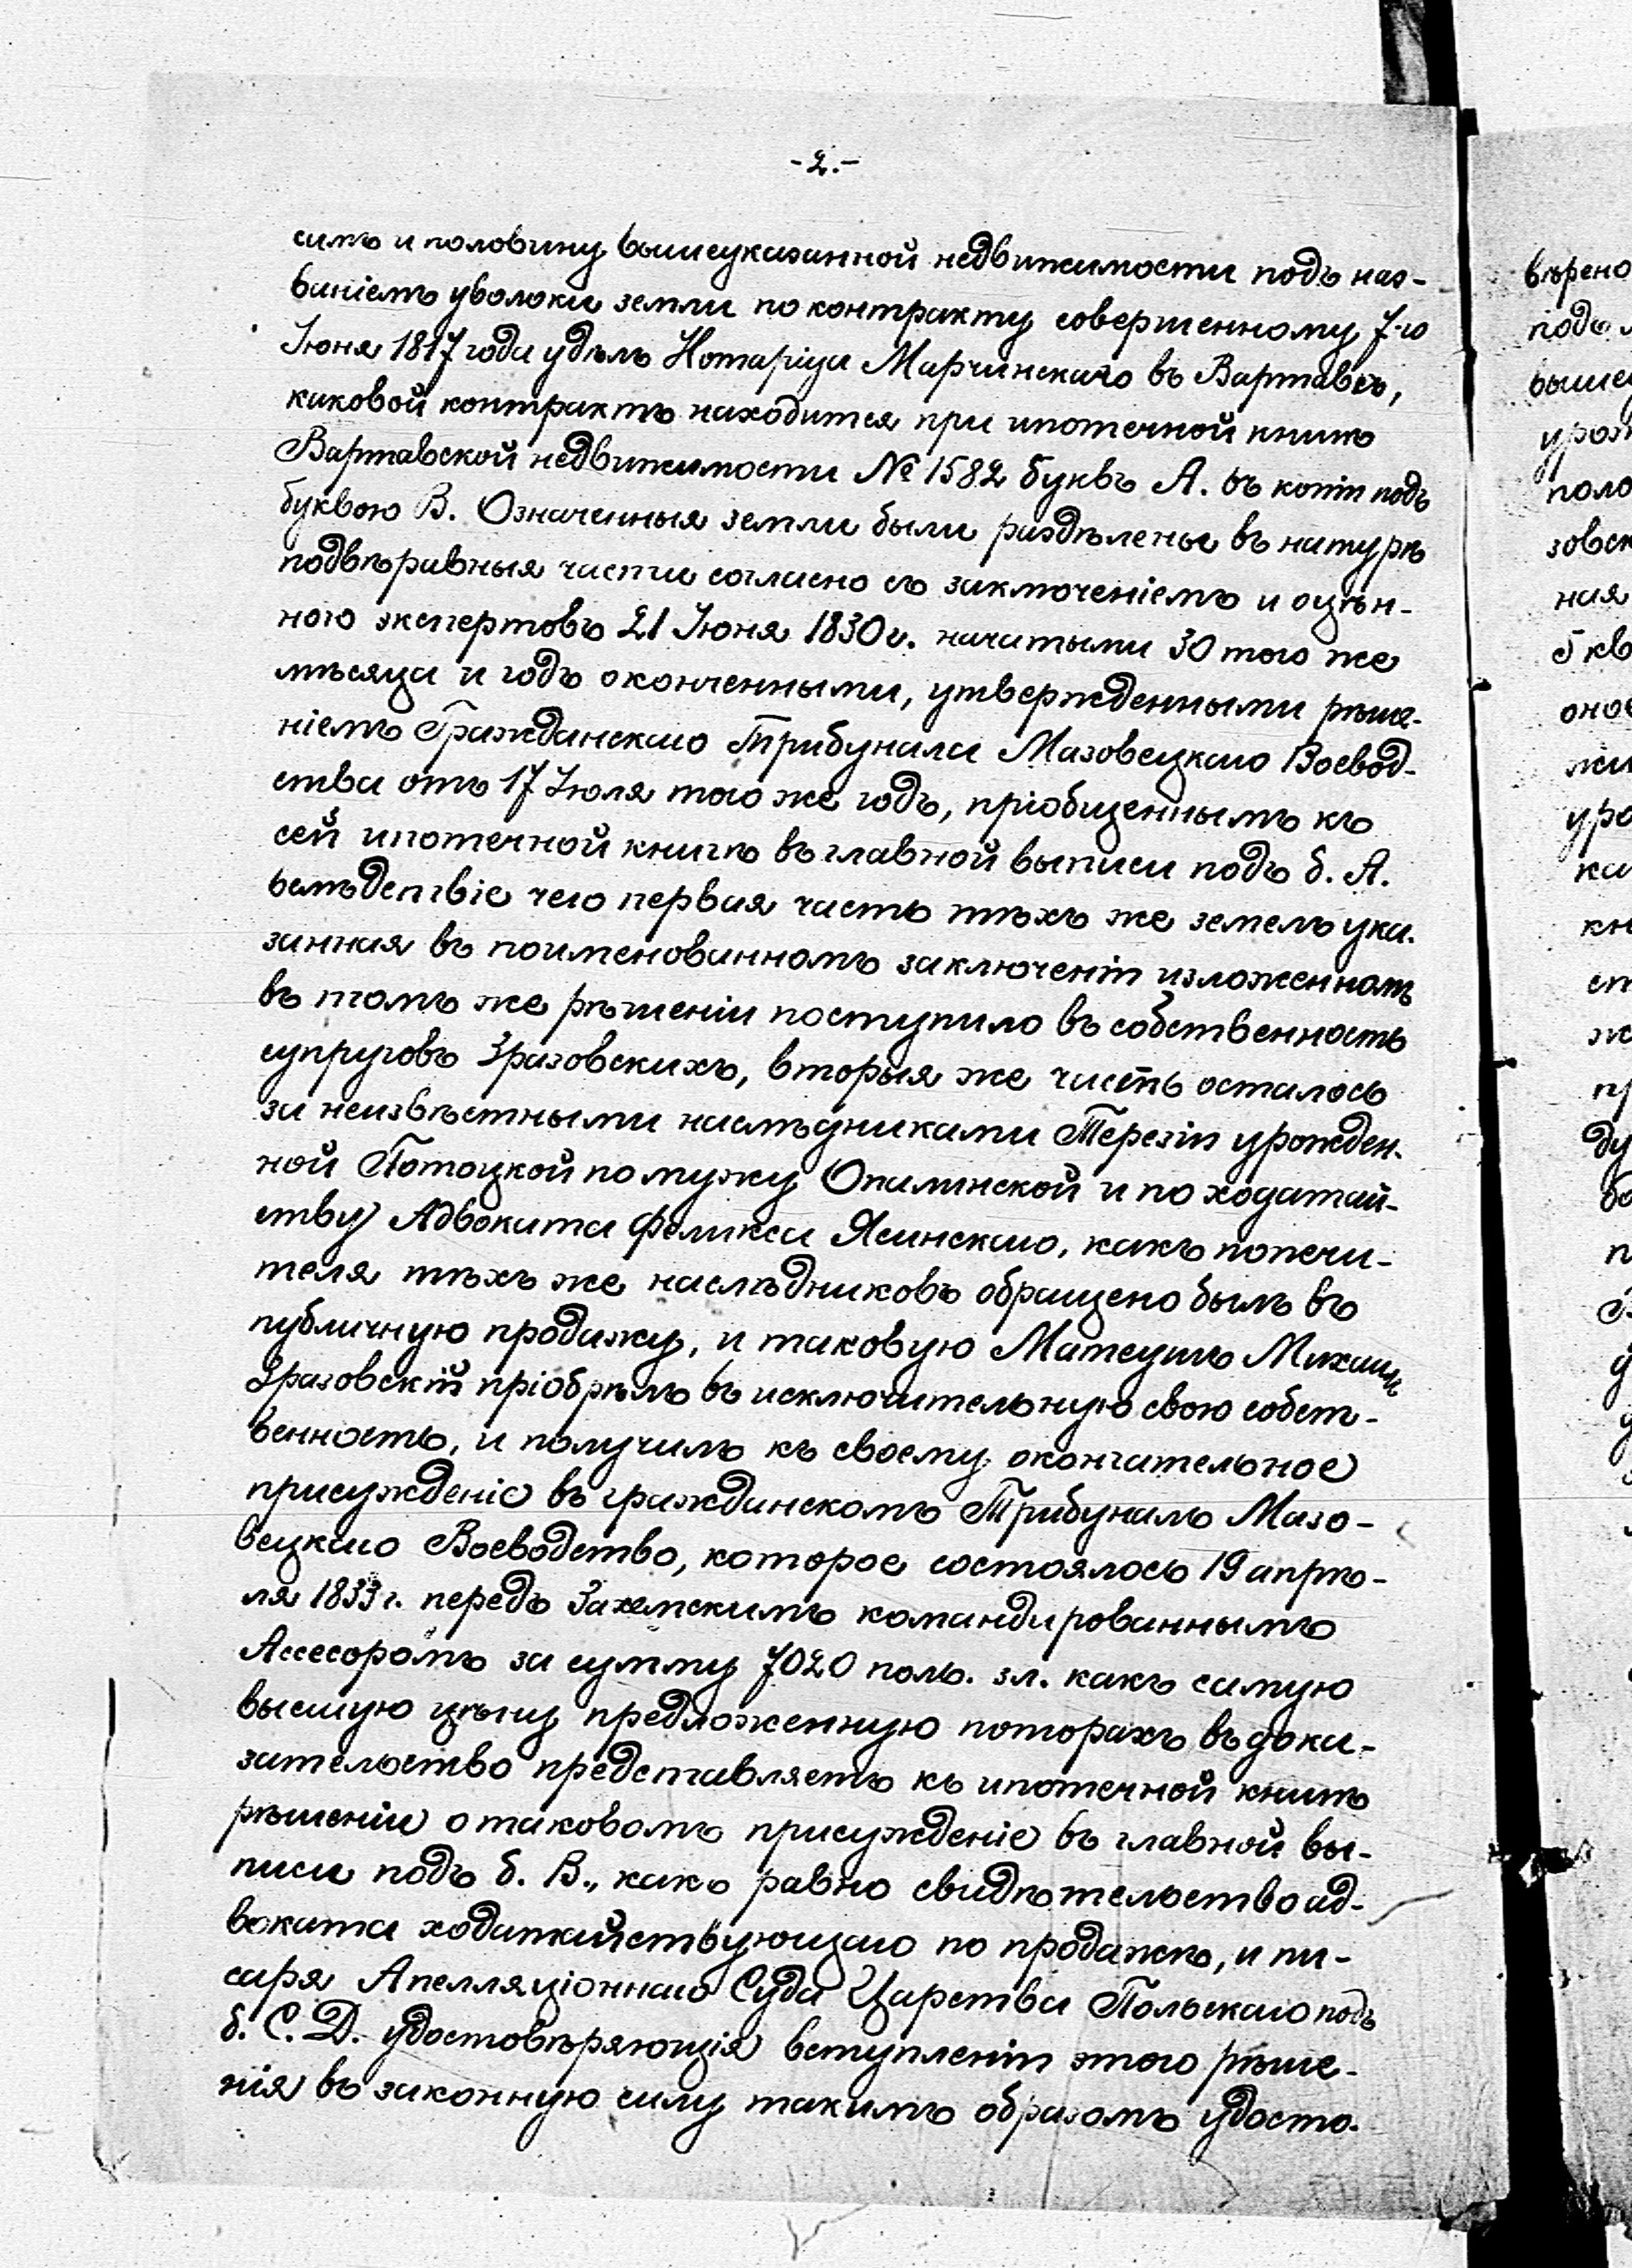 -2.-
силъ и половину вышеуказанной недвижимости подъ наз-
ваніемъ уволоки земли по контракту совершенному 7-го
Іюня 1817 года у дѣлъ Нотаріуса Марчинскаго въ Варшавѣ,
каковой контрактъ находится при ипотечной книгѣ
Варшавской недвижимости № 1582 буквъ А. въ копіи подъ
буквою В. Означенныя земли были раздѣлены въ натурѣ
подвѣравныя части согласно съ заключеніемъ и оцѣн-
ною экспертовъ 21 Іюня 1830 г. начатыми 30 того же
мѣсяца и годъ оконченными, утвержденными рѣше-
ніемъ Гражданскаго Трибунала Мазовецкаго Воевод-
ства отъ 17 Іюля того же годъ, пріобщеннымъ къ
сей ипотечной книгѣ въ главной выписи подъ б. А.
вслѣдствіе чего первая часть тѣхъ же земель ука-
занная въ поименованномъ заключеніи изложенномъ
въ томъ же рѣшеніи поступило въ собственность
супруговъ Зразовскихъ, вторыя же часть осталось
за неизвѣстными наслѣдниками Терезіи урожден-
ной Потоцкой по мужу Опалинской и по ходатай-
ству Адвоката Феликса Ясинскаго, какъ попечи-
теля тѣхъ же наслѣдниковъ обращено былъ въ
публичную продажу, и таковую Матеушъ Михаилъ
Зразовскій пріобрѣлъ въ исключительную свою собст-
венность, и получилъ къ своему окончательное
присужденіе въ гражданскомъ Трибуналъ Мазо-
вецкаго Воеводство, которое состоялось 19 апрѣ-
ля 1833 г. передъ командированнымъ
Ассесоромъ за сумму 7020 поль. зл. какъ самую
высшую цѣну предложенную поторахъ въ дока-
зательство представляетъ къ ипотечной книгѣ
рѣшеніи о таковомъ присужденіе въ главной вы-
писи подъ б. В., какъ равно свидѣтельство ад-
воката ходатайствующаго по продажѣ, и пи-
саря Апелляціоннаго Суда Царства Польскаго подъ
б. С. Д. удостовѣряющія вступленіи этого рѣше-
нія въ законную силу такимъ образомъ удосто-